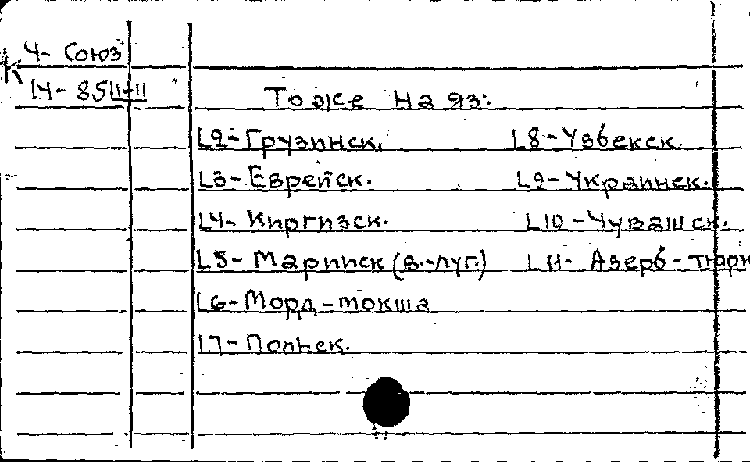 Ч- Союз
14-85
То же на яз:
L2- Грузинск.
L3- Еврейск.
L4- Киргизск.
L5- Мариийск (в.-луг.)
L6- Морд-мокша
L7- Польск.
L8- Узбекск.
L9- Украинск.
L10- Чувашск.
L11- Азерб-тюрк